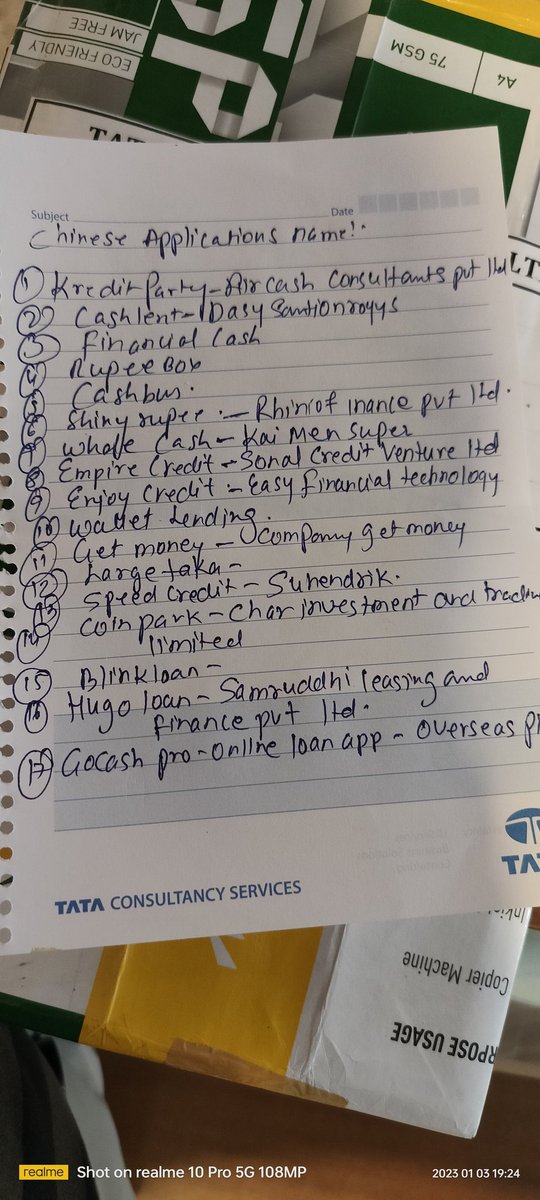 JAM FREE
ECO FRIENDLY
75 GSM
A4
Subject
Date
Chinese Applications name!.
① Kredit Party - Air cash Consultants pvt ltd
② Cashlent - Dasy Santionroyys
③ Financial Cash
④ Rupee Box
⑤ Cashbus.
⑥ Shiny rupee :- Rhinof inance pvt ltd.
⑦ Whole Cash - Kai Men Super
⑧ Empire Credit - Sonal Credit Venture ltd
⑨ Enjoy Credit :- Easy financial technology
⑩ Wallet Lending.
⑪ Get money - Company get money
⑫ Large taka -
⑬ Speed Credit - Suhendrik.
⑭ Coin park - Char investment and
limited
⑮ Blinkloan -
⑯ Hugo loan - Samruddhi leasing and
finance pvt ltd.
⑰ Gocash pro - online loan app - overseas
TATA CONSULTANCY SERVICES
TA
Copier Machine
RPOSE USAGE
realme Shot on realme 10 Pro 5G 108MP
2023 01 03 19:24